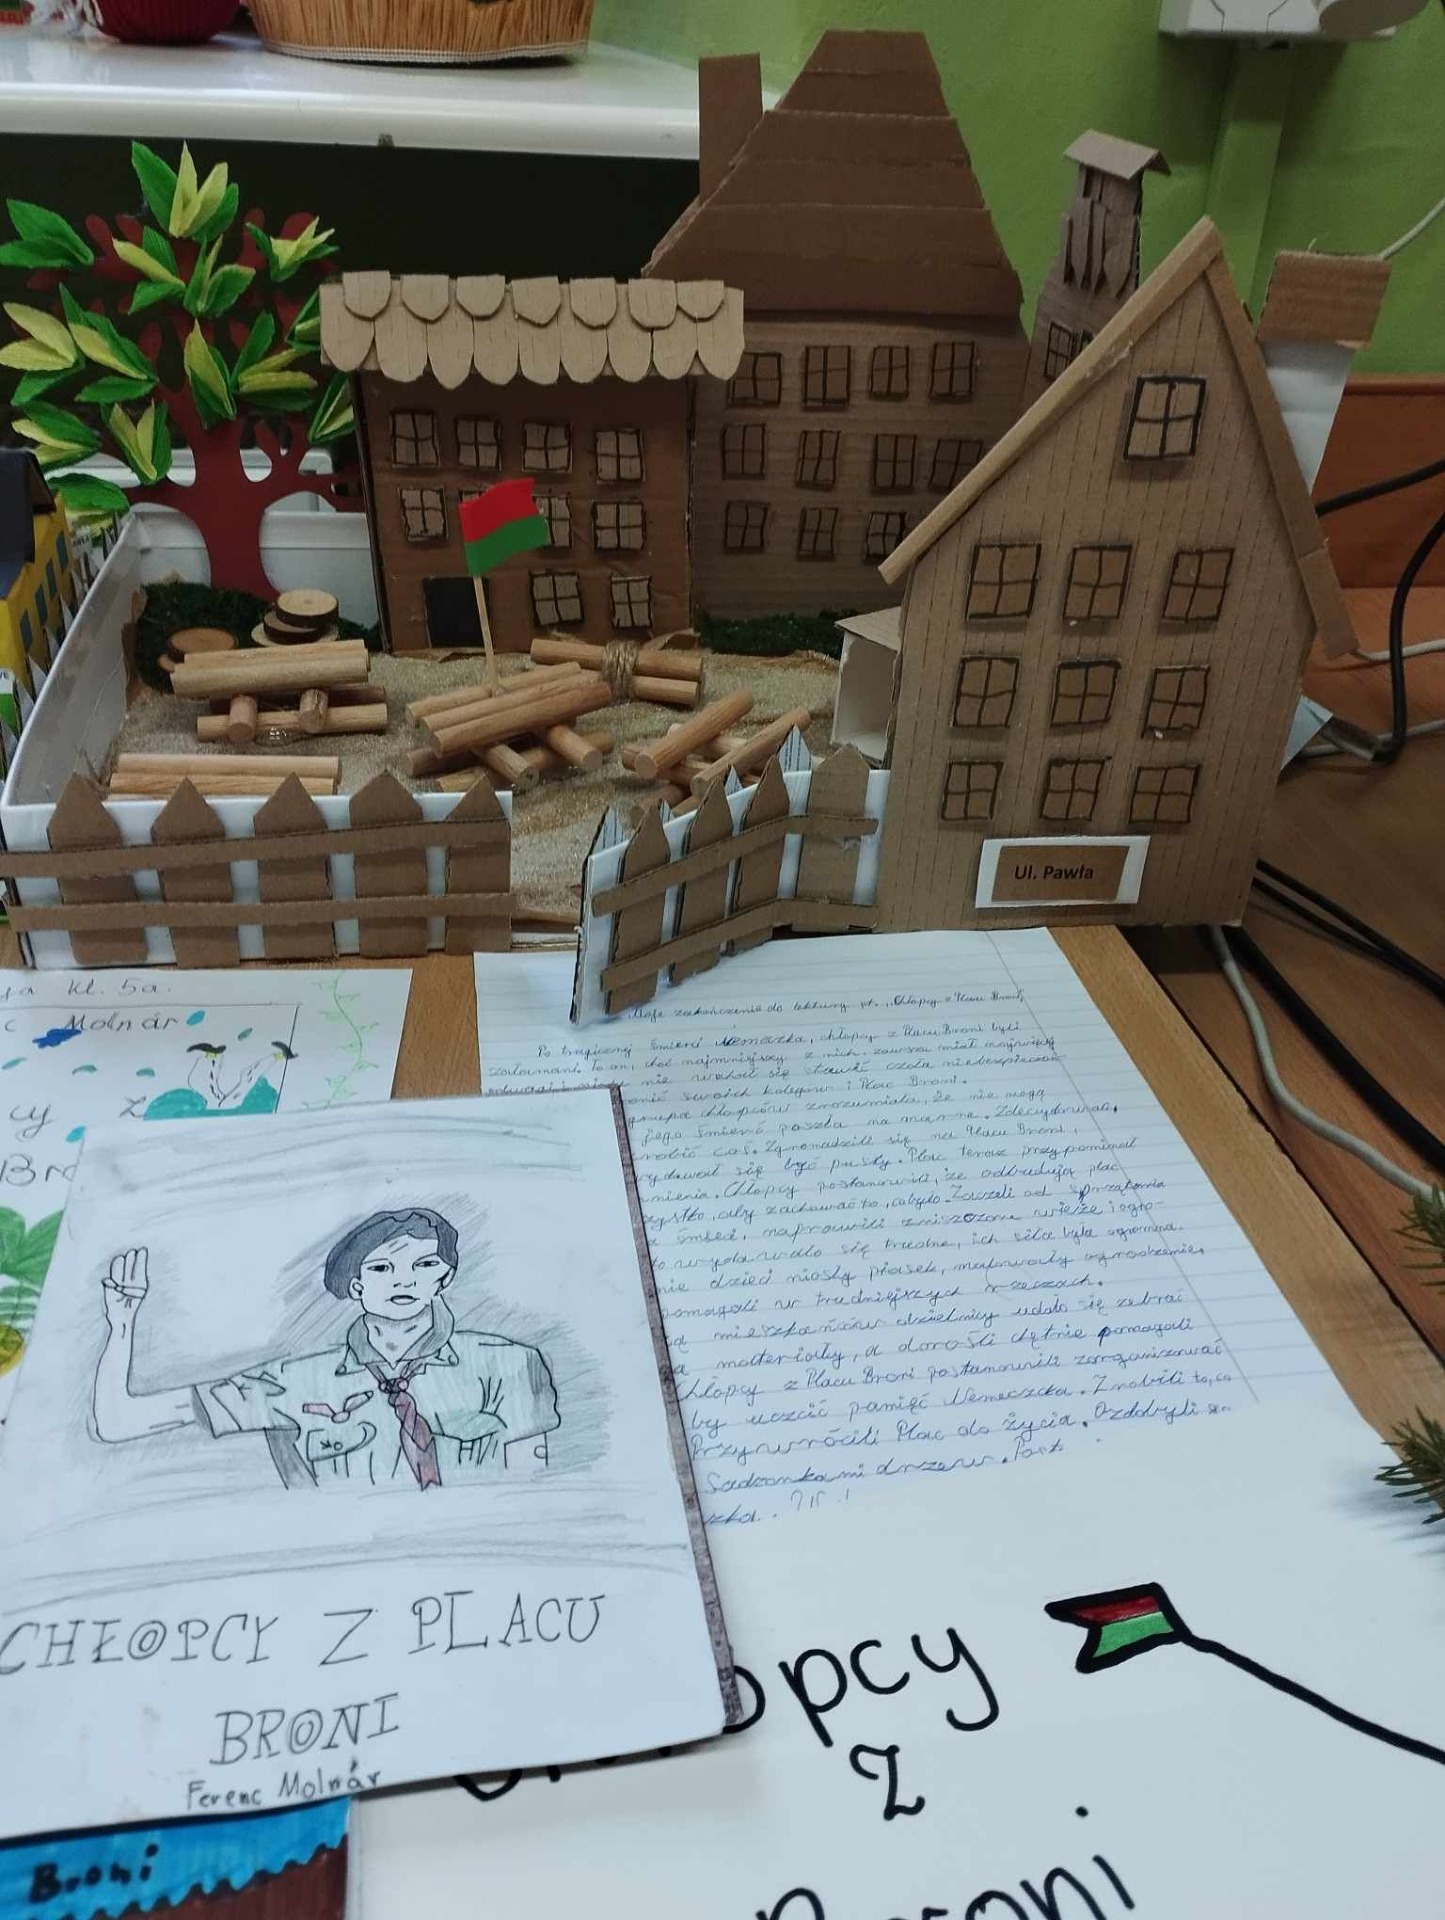 Ul. Pawła
kl. 5a.
Molnár
cy z
Moje zakończenie do lektury pt. "Chłopcy z Placu Broni"
Po tragicznej śmierci Nemeczka, chłopcy z Placu Broni byli
załamani. To on, choć najmniejszy z nich, zawsze miał największą
nie wahał się stawić czoła
swoich kolegów i Plac Broni.
grupa chłopców zrozumiała, że nie mogą
jego śmierć poszła na marne. Zdecydowali,
robić coś. Zgromadzili się na Placu Broni,
się być pusty. Plac teraz przypominał
Chłopcy postanowili, że odbudują plac
aby zachować to, co było. Zaczęli od sprzątania
naprawili zniszczone wieże i ogro-
wydawało się trudne, ich siła była ogromna.
dzieci niosły piasek, malowały ogrodzenie,
pomagali w trudniejszych rzeczach.
mieszkańców dzielnicy udało się zebrać
materiały, a dorośli chętnie pomagali
Chłopcy z Placu Broni postanowili zorganizować
by uczcić pamięć Nemeczka. Zrobili to, co
Przywrócili Plac do życia. Ozdobili go
Sadzonkami drzew.
CHŁOPCY Z PLACU
BRONI
Ferenc Molnár
opcy
Z
Broni
Broni